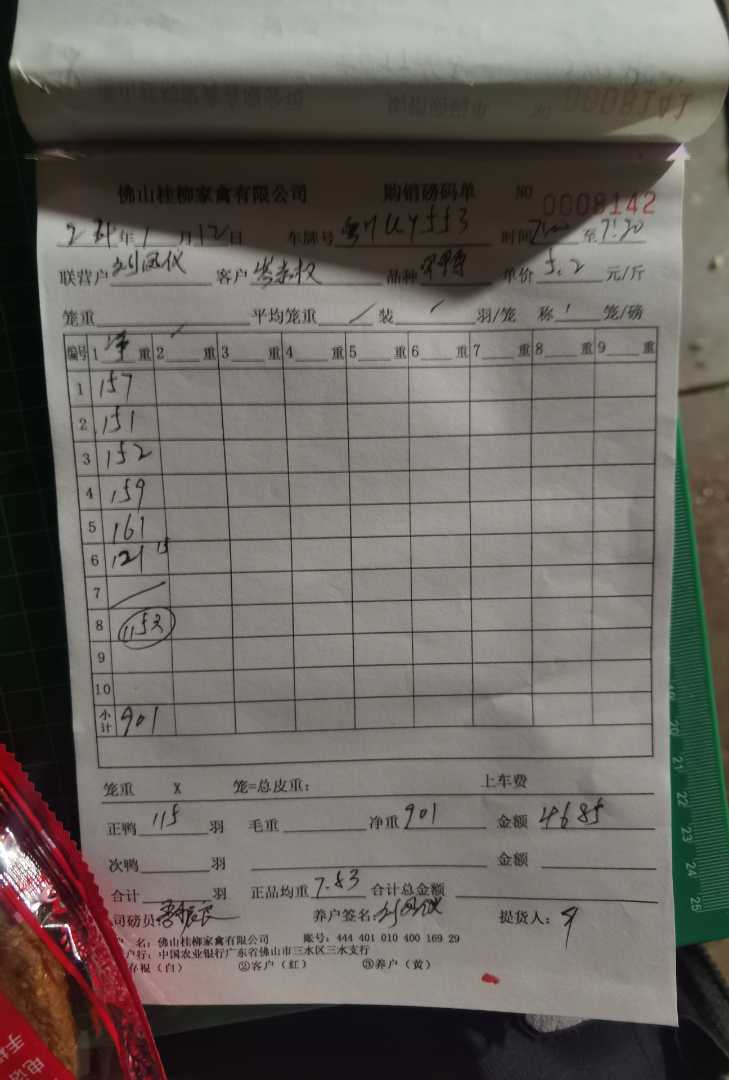 佛山桂柳家禽有限公司 购销磅码单 NO 0008142
年 1 月 12 日 车牌号 时间 7:00 至 7:30
联营户 刘凤仪 客户 品种 单价 5.2 元/斤
笼重 平均笼重 / 装 / 羽/笼 称 笼/磅
编号 1 净 重 2 重 3 重 4 重 5 重 6 重 7 重 8 重 9 重
1 157
2 151
3 152
4 159
5 161
6 121 15
7
8
9
10
小计 901
笼重 X 笼=总皮重: 上车费
正鸭 115 羽 毛重 净重 901 金额 4685
次鸭 羽 金额
合计 羽 正品均重 7.83 合计总金额
司磅员 养户签名: 刘凤仪 提货人:
户 名: 佛山桂柳家禽有限公司 账号: 444 401 010 400 169 29
户行: 中国农业银行广东省佛山市三水区三水支行
存根 (白) ②客户 (红) ③养户 (黄)
20
21
22
23
24
25